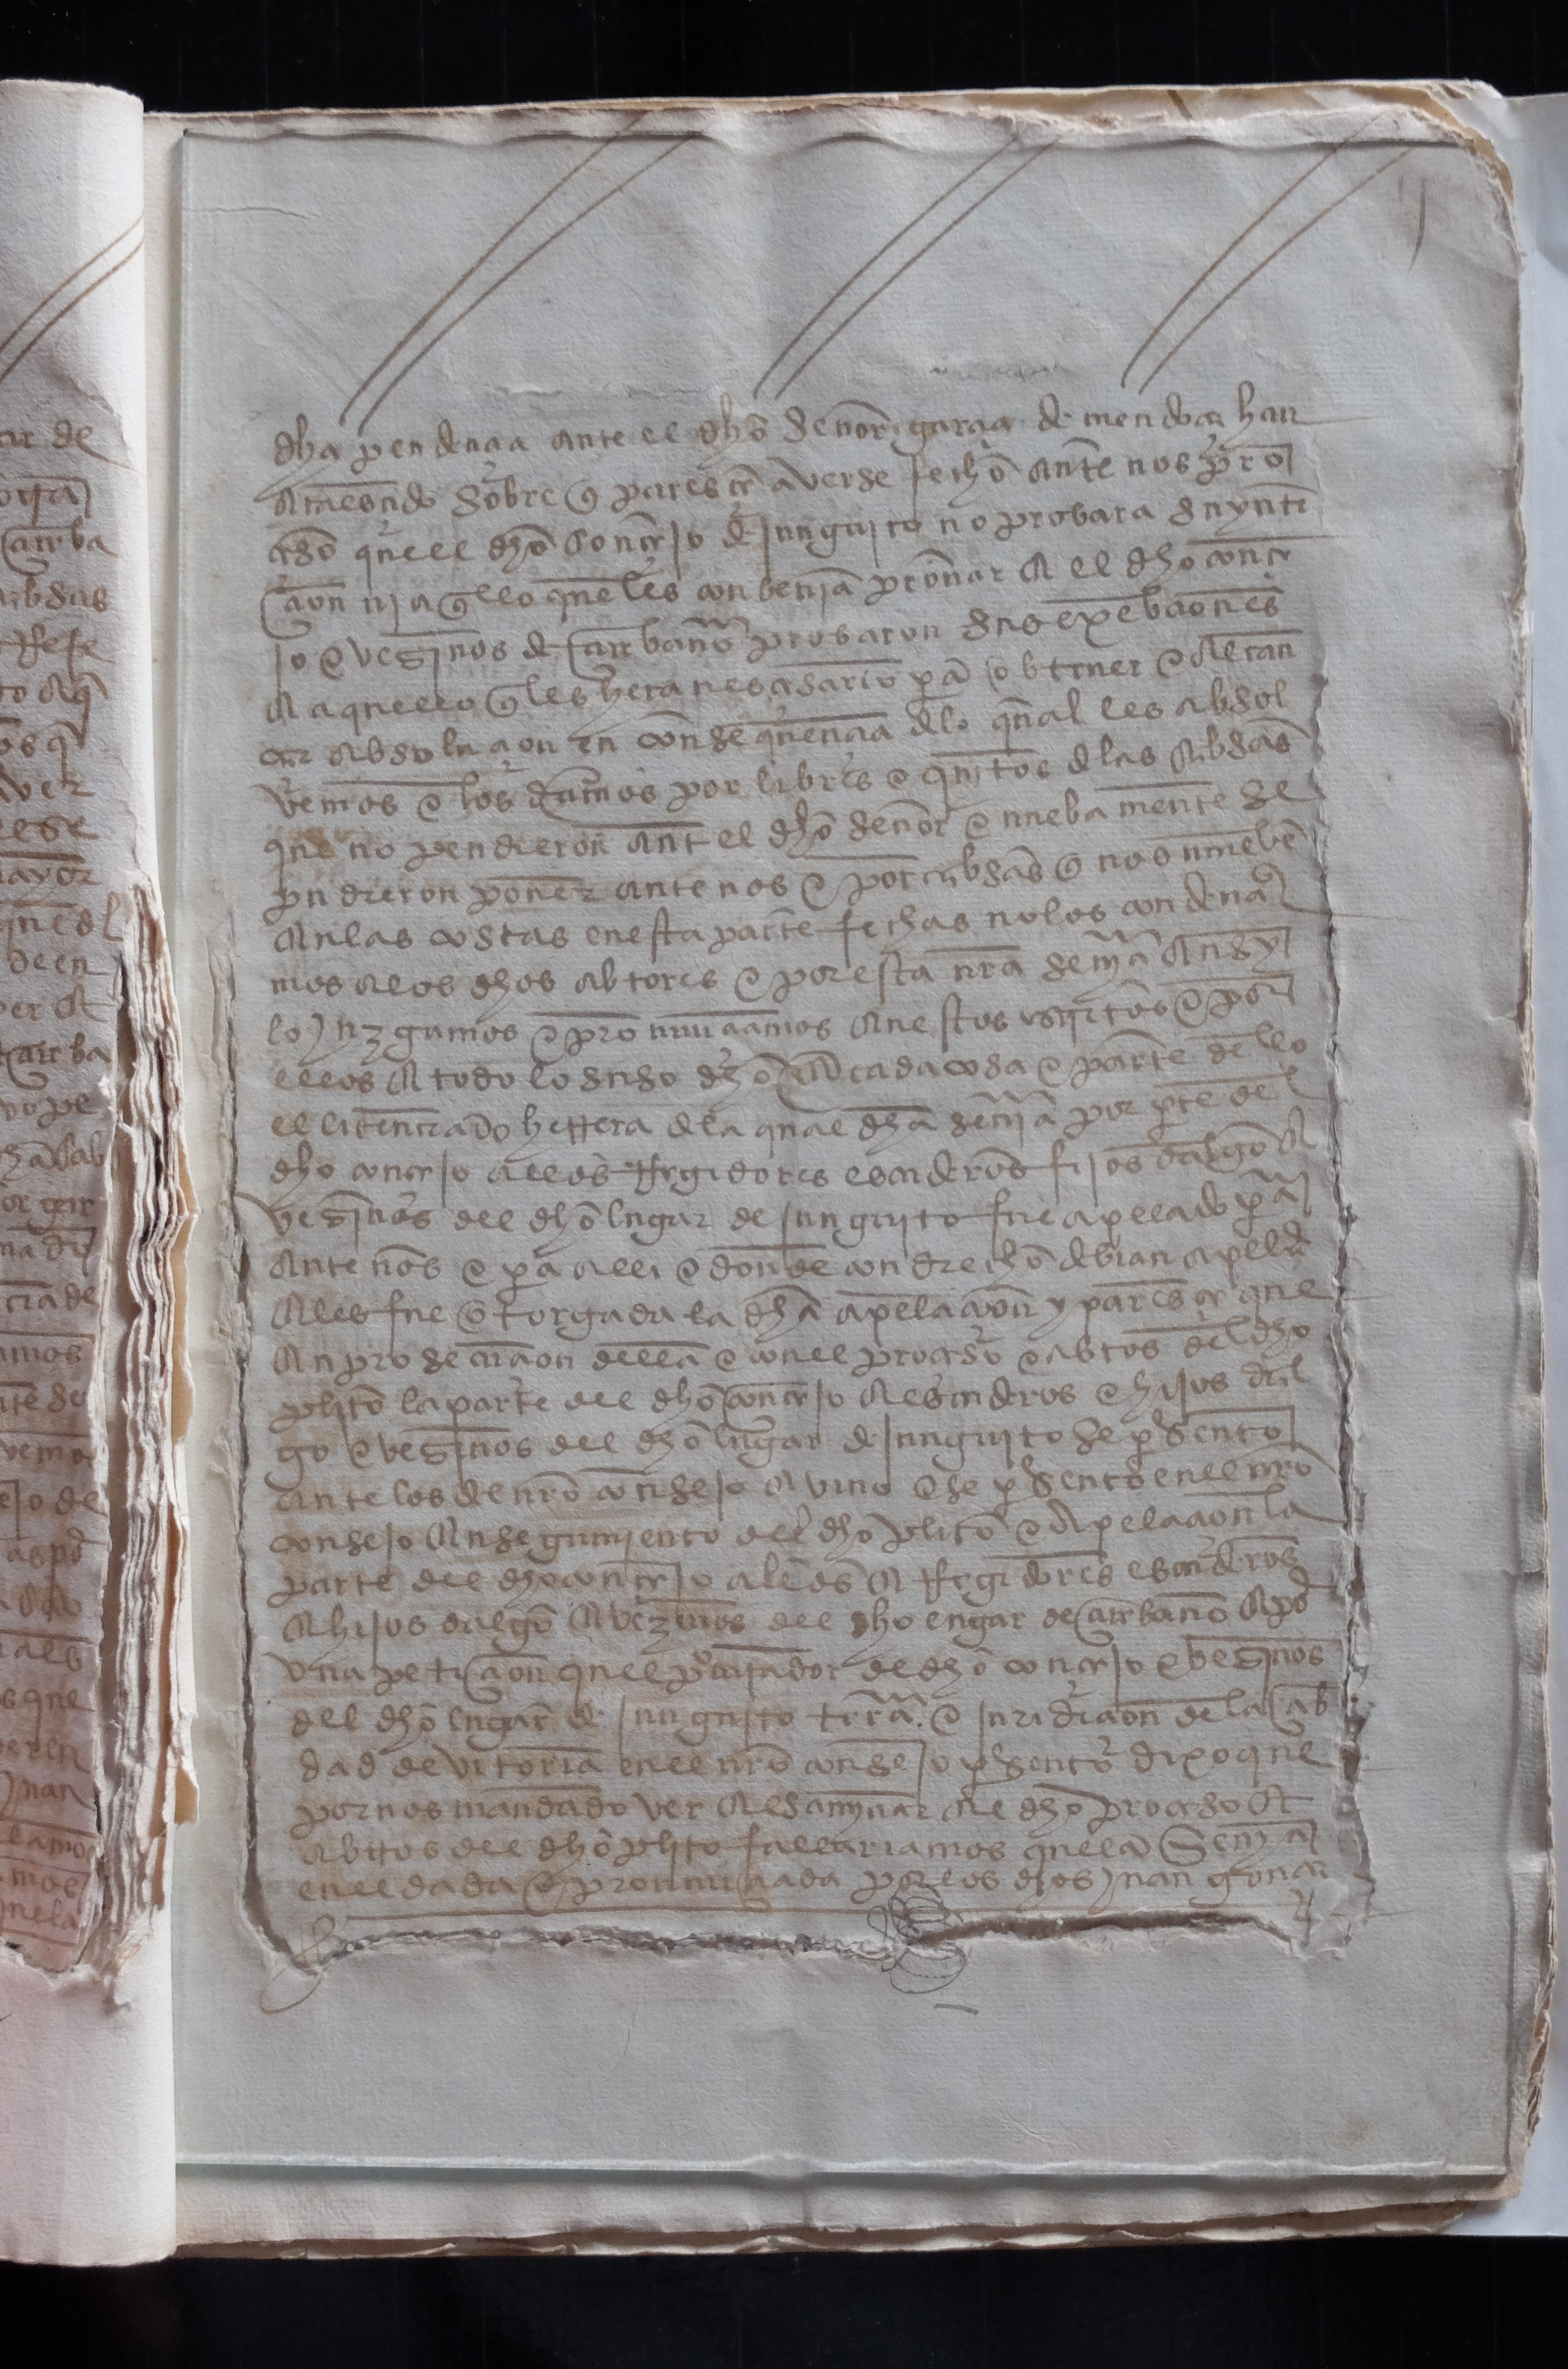 dha pendençia ante el dho señor garçia de mendoça han
acaesçido sobre q̃ paresçe averse fecho ante nos proֿ
çeso quel dho conçejo de junguito no probara su ynten
çion ni aq̃llo que les convenia provar e el dho conçe
jo e vesjnos de carbano probaron sus exebçiones
e aquello q̃ les hera nesçesario pa obtener e alcan
çar absoluçion en consequençia dlo qual les absol
vemos e los damos por libres e quitos dlas cabsas
que no pendieron ante el dho señor e nueba mente se
pudieron poner ante nos e por cabsas q̃ nos mueben
en las costas en esta parte fechas no los condena
mos a los dhos abtores e por esta nra senia ansy
lo juzgamos e pronunçiamos en estos escritos e por
ellos e todo lo suso dho e cada cosa e parte dello
el liçençiado herrera dla qual dha senia por pte del
dho conçejo alcds rregidores escuderos fijos dalgo e
vesjnos del dho lugar de junguito fue apelado pa
ante nos e pa alli e donde con derecho debian apelar
e les fue otorgada la dha apelaçion y paresçe que
en prosecuçion della e con el proçeso e abtos del dho
plito la parte del dho conçejo e escuderos e hijos dal
go e vesjnos del dho lugar de junguito se psento
ante los del nro consejo e vino e se psento en el nro
consejo en seguimiento del dho plito e apelaçion la
parte del dho conçejo alcds e rregidores escuderos
e hijos dalgo e vezinos del dho lugar de carbano e por
una petiçion quel procurador de dho conçejo e vesjnos
del dho lugar de junguito trra e juridiçion de la çib
dad de vitoria en el nro consejo psento dixo que
por nos mandado ver e esaminar el dho proçeso e
abtos del dho plito fallariamos que la senia
en el dada e pronunçiada por los dhos juan gonçal